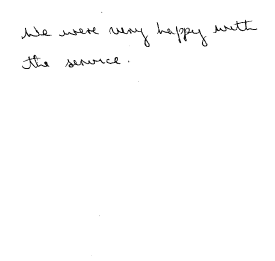 We were very happy with
the service.